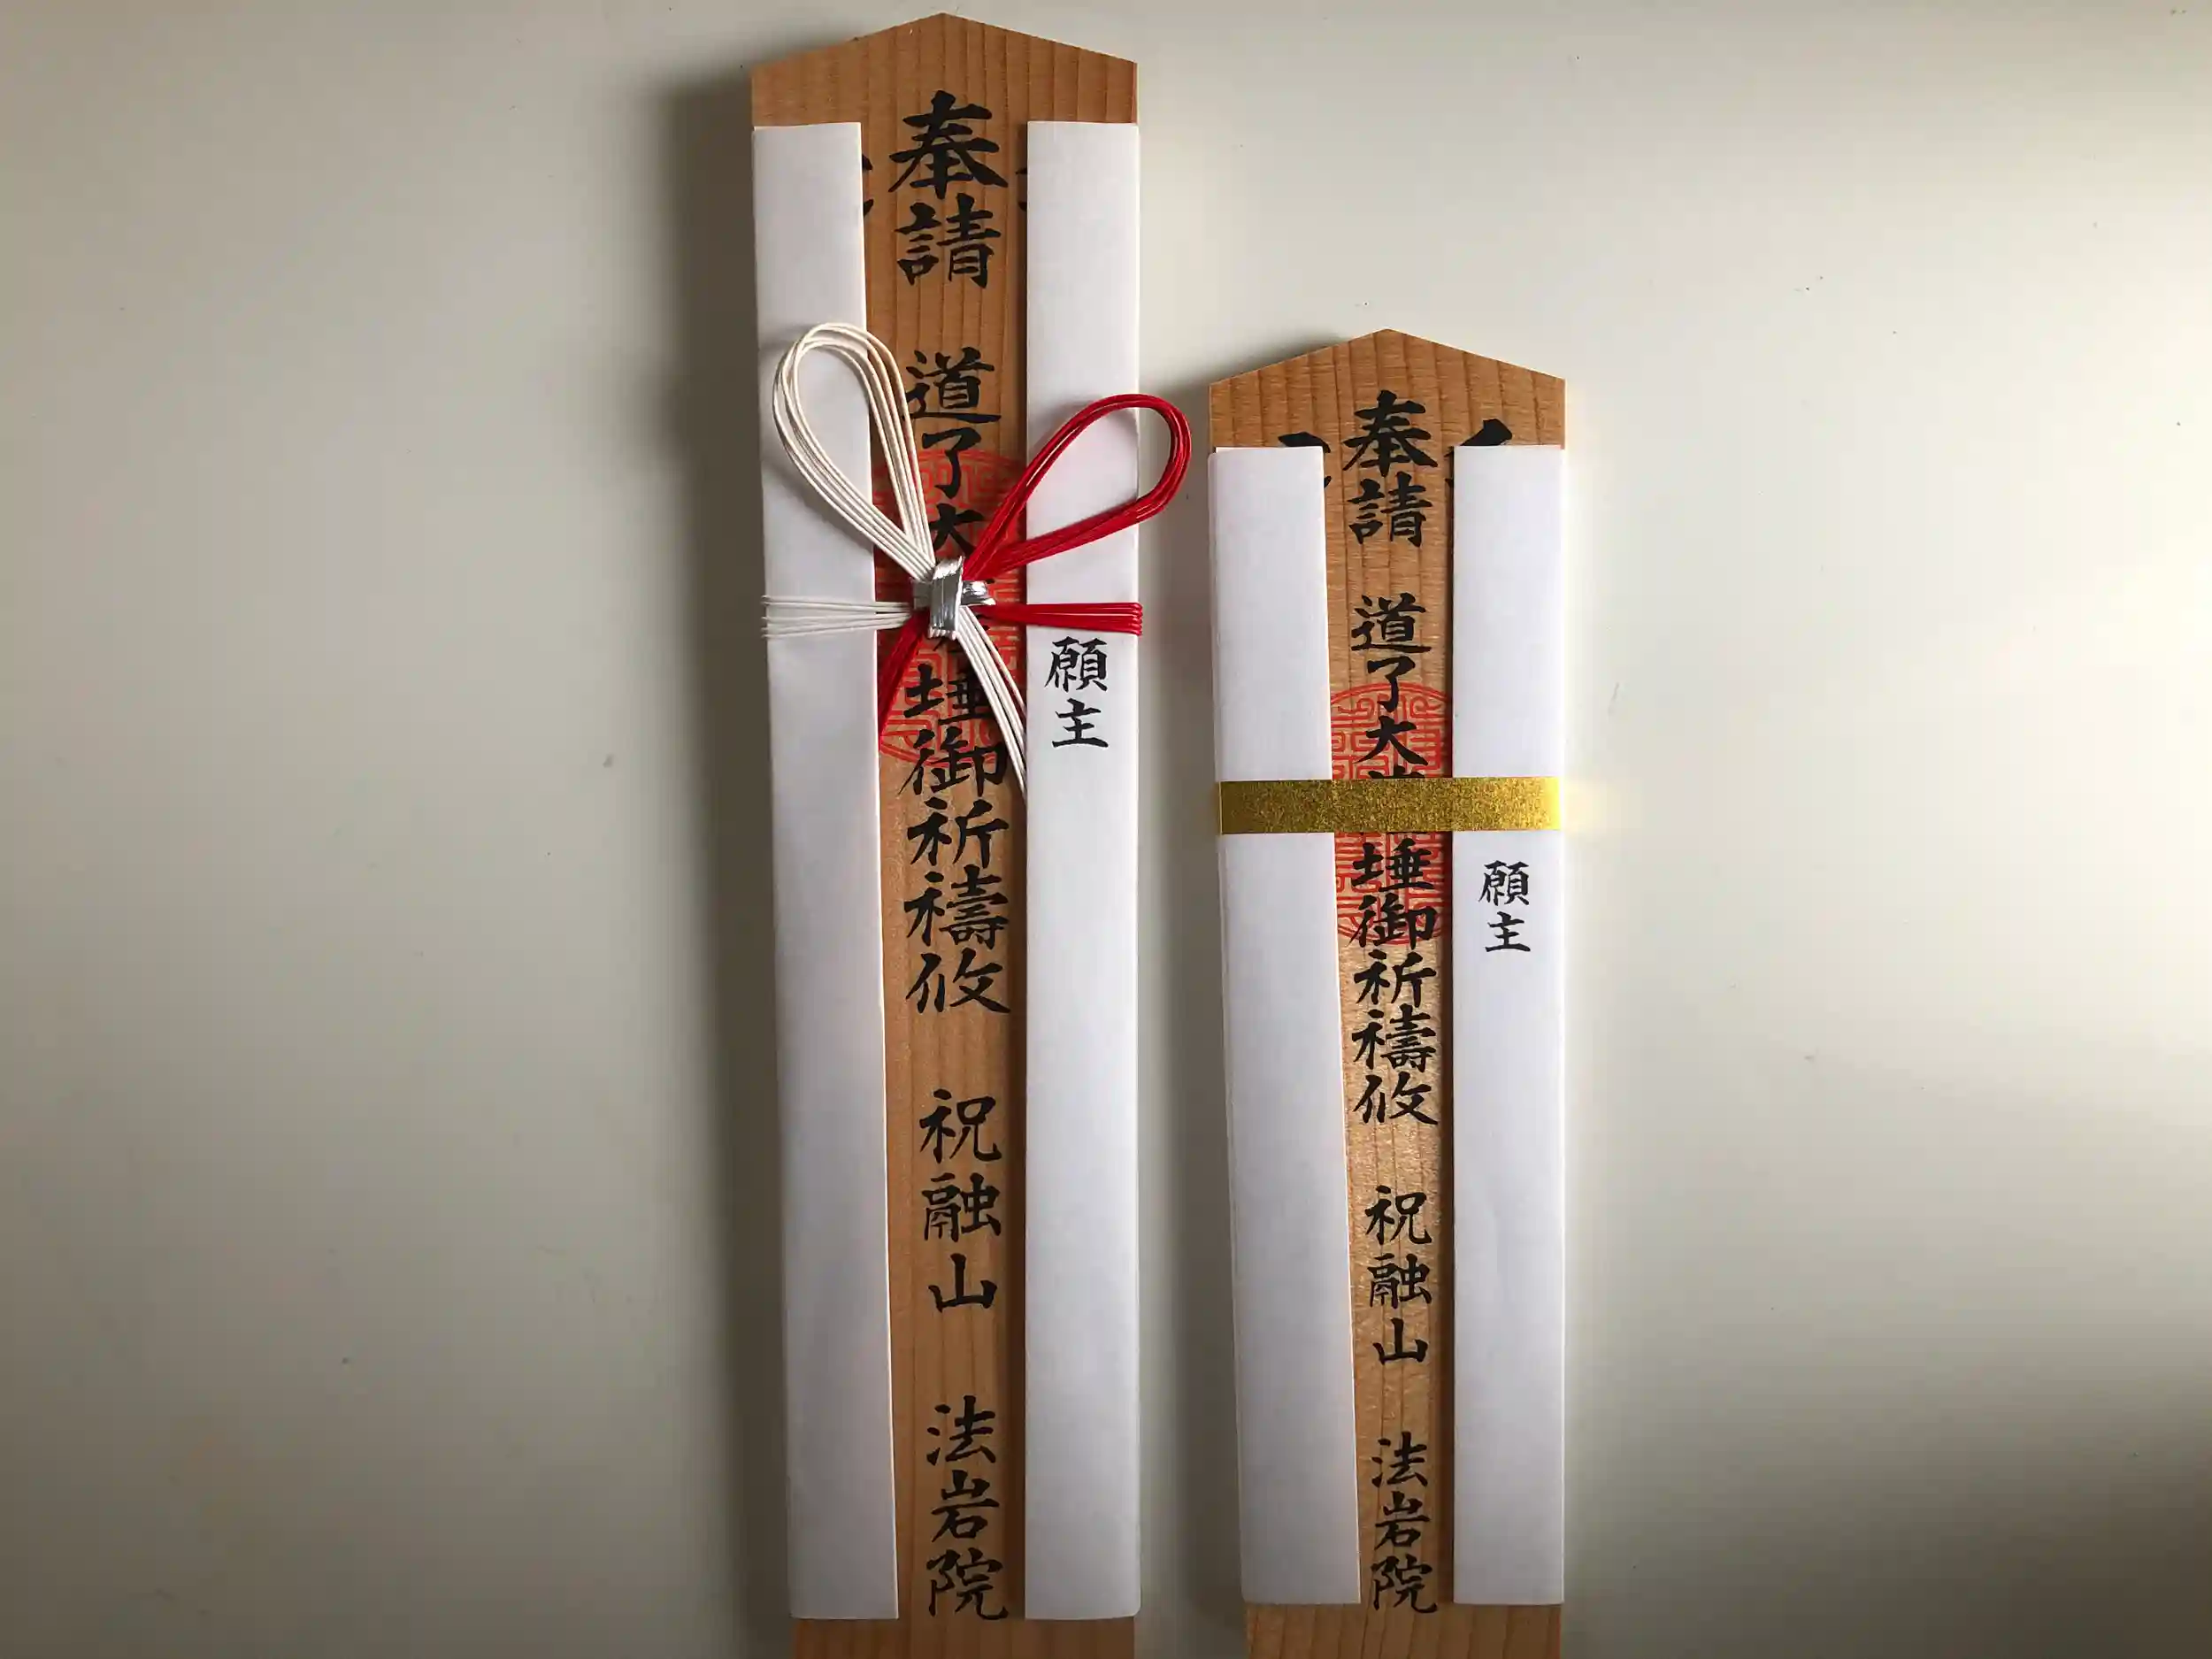 奉請 道了大 埵御祈禱攸 祝融山 法岩院
願主
奉請 道了大 埵御祈禱攸 祝融山 法岩院
願主